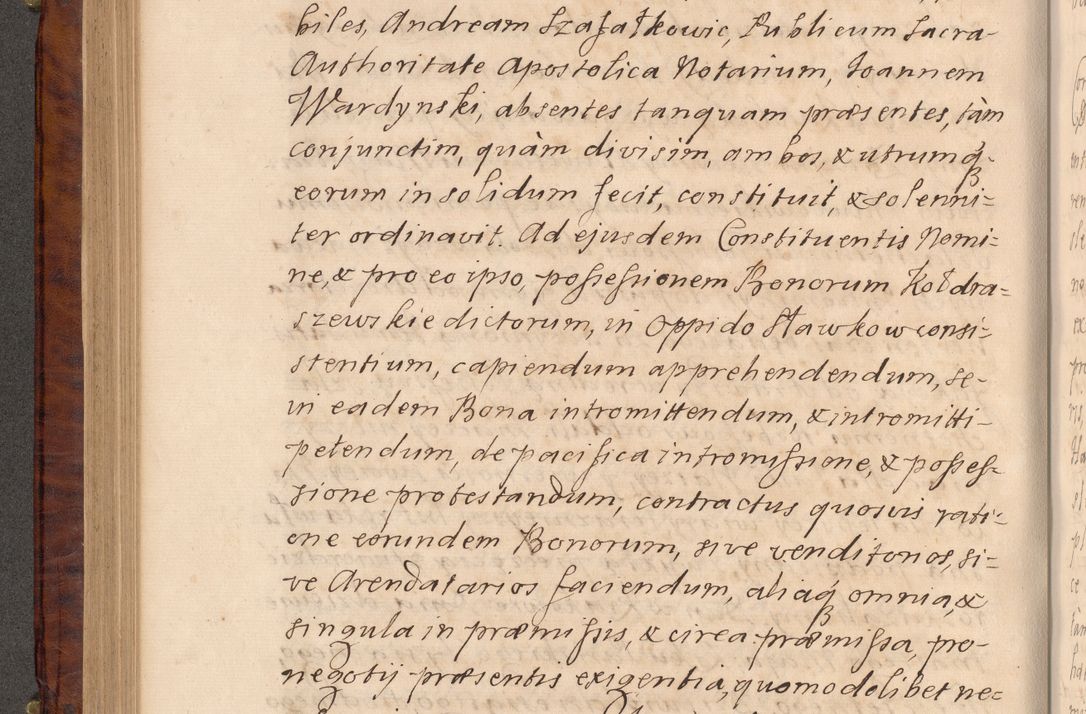 biles, Andream Szafałkowic, Publicum Sacra-
Authoritate Apostolica Notarium, Joannem
Wardynski, absentes tanquam præsentes, tàm
conjunctim, quàm divisim, ambos, & utrumq3
eorum in solidum fecit, constituit, & solenni=
ter ordinavit. Ad ejusdem Constituentis Nomi=
ne, & pro eo ipso, possessionem Bonorum Kołdra=
szewskie dictorum, in Oppido Sławkow consi=
stentium, capiendum apprehendendum, se-
in eadem Bona intromittendum, & intromitti-
petendum, de pacifica intromissione, & posses-
sione protestandum, contractus quosvis rati=
one eorundem Bonorum, sive venditonos, si=
ve Arendatarios faciendum, aliaq3 omnia, &
singula in præmissis, & circa præmissa, pro-
negotij præsentis exigentia, quomodolibet ne=